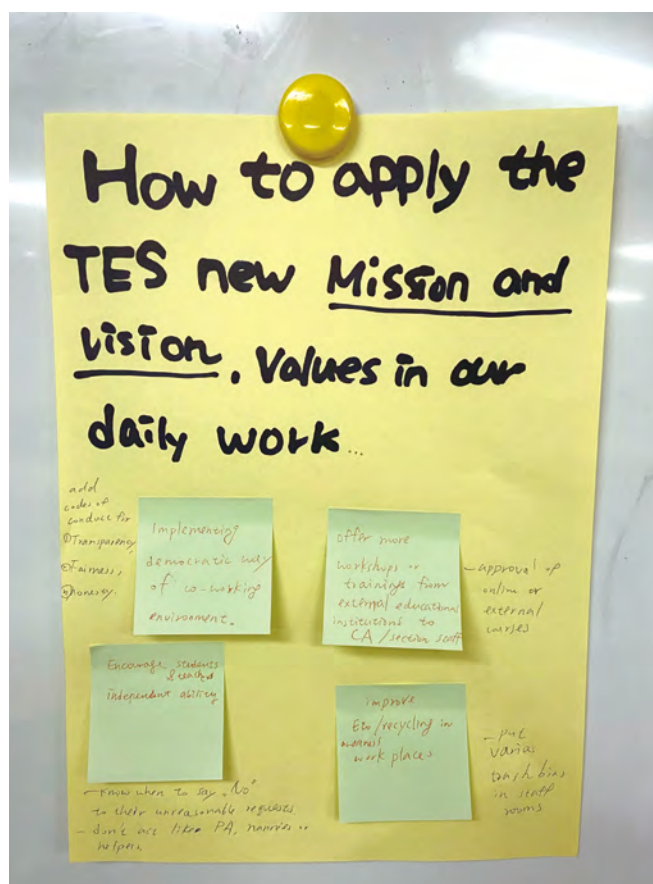 How to apply the
TES new Mission and
vision, Values in our
daily work...
add
codes of
conduct for
① Transparency
② Fairness,
③ honesty.
Implementing
democratic way
of co-working
environment.
offer more
workshops or
trainings from
external educational
institutions to
CA/section staff
- approval of
online or
external
courses
Encourage students
& teachers
independent ability
- Know when to say "No"
to their unreasonable requests.
- don't act like PA, nannies or
helpers
improve
Eco/recycling in
awareness
work places
- put
varias
trash bins
in staff
rooms